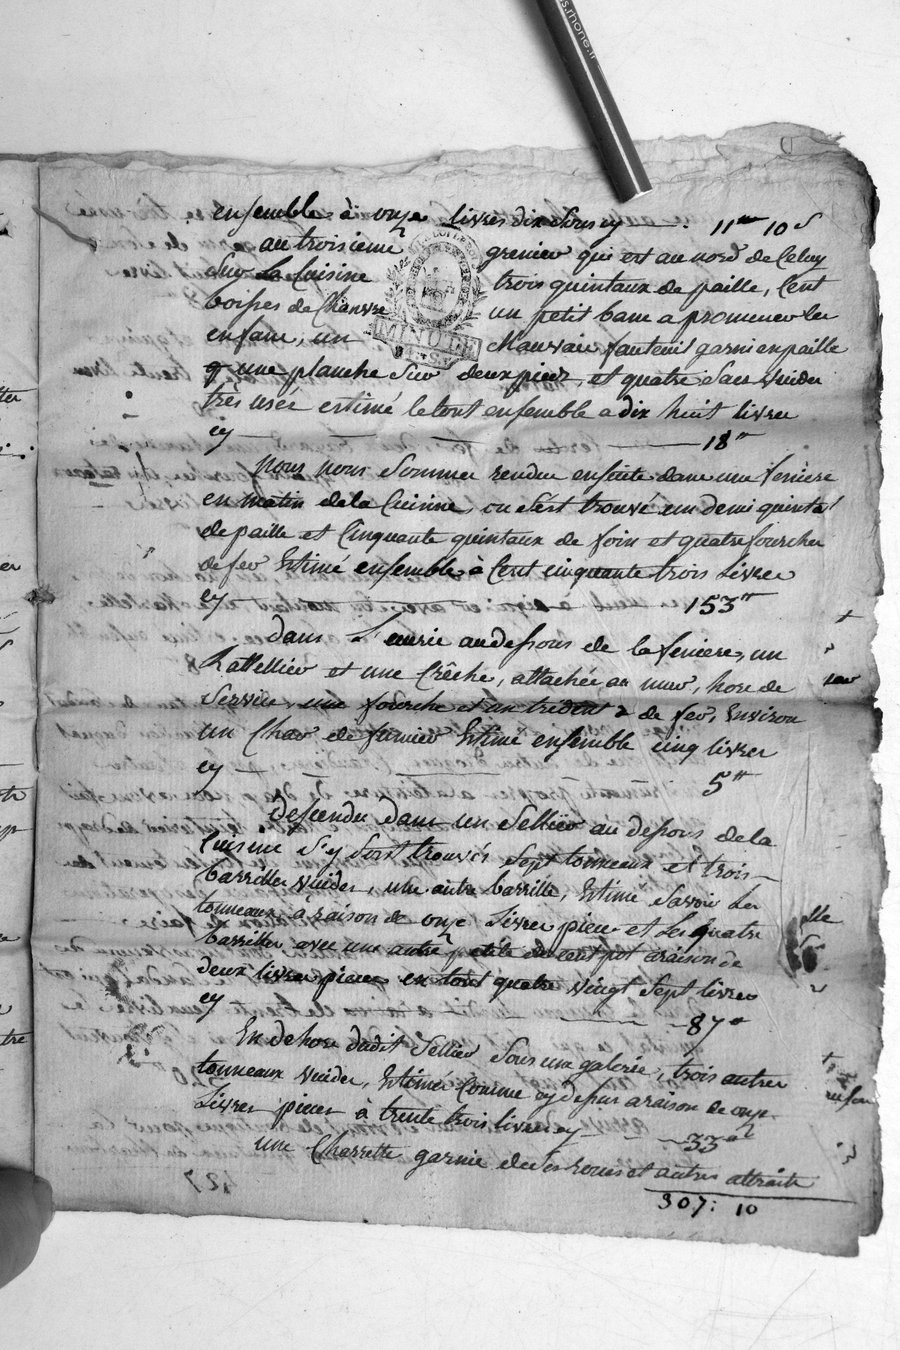 s.rhone.fr
ensemble à onze livres dix sous cy 11tt 10 s
au troisieme grenier qui est au nord de Celuy
Sur la Cuisine trois quintaux de paille, Cent
boisses de Chanvre un petit banc a promener les
enfans, un Mauvais fauteuil garni en paille
MINUTE
& une planche Sur deux pieds, et quatre Sacs Vuides
très usés estimé le tout ensemble a dix huit livres
cy 18tt
Nous nous Sommes rendus ensuite dans une feniere
en matin de la Cuisine, ou s'est trouvé un demi quintal
de paille et Cinquante quintaux de foin et quatre fourches
de fer Estimé ensemble à Cent cinquante trois Livres
cy 153tt
dans L'ecurie au dessous de la feniere, un
Rattellier et une Crêche, attachée au mur, hors de
Service, une fourche et un trident de fer, Environ
un Char de fumier Estimé ensemble cinq livres
cy 5tt
descendu dans un Sellier au dessous de la
Cuisine S'y sont trouvés Sept tonneaux et trois
barrilles Vuides, une autre barrille, Estimé Savoir Les
tonneaux à raison de onze Livres piece et Les quatre
barrilles avec une autre petite de cent pot a raison de
deux livres pieces en tout quatre vingt Sept livres
cy 87tt
En dehors dudit Sellier Sous une galerie, trois autres
tonneaux vuides, Estimés Comme cy dessus a raison de onze
Livres pieces à trente trois livres cy 33tt
une Charrette garnie de Ses roues et autres attraits
307: 10